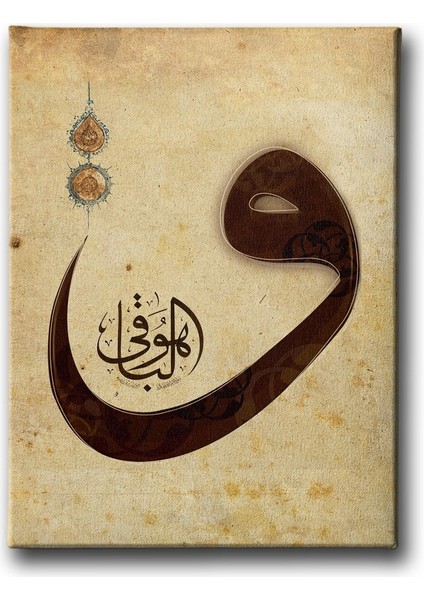 و
هو الباقي